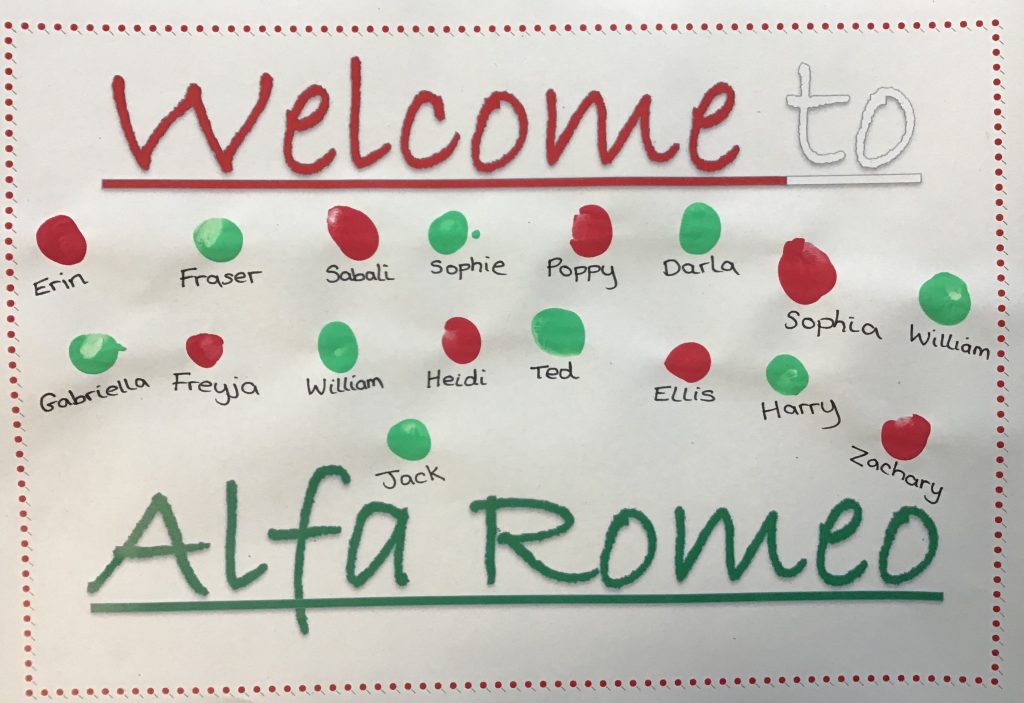 Welcome to
Erin Fraser Sabali Sophie Poppy Darla Sophia William
Gabriella Freyja William Heidi Ted Ellis Harry
Jack Zachary
Alfa Romeo